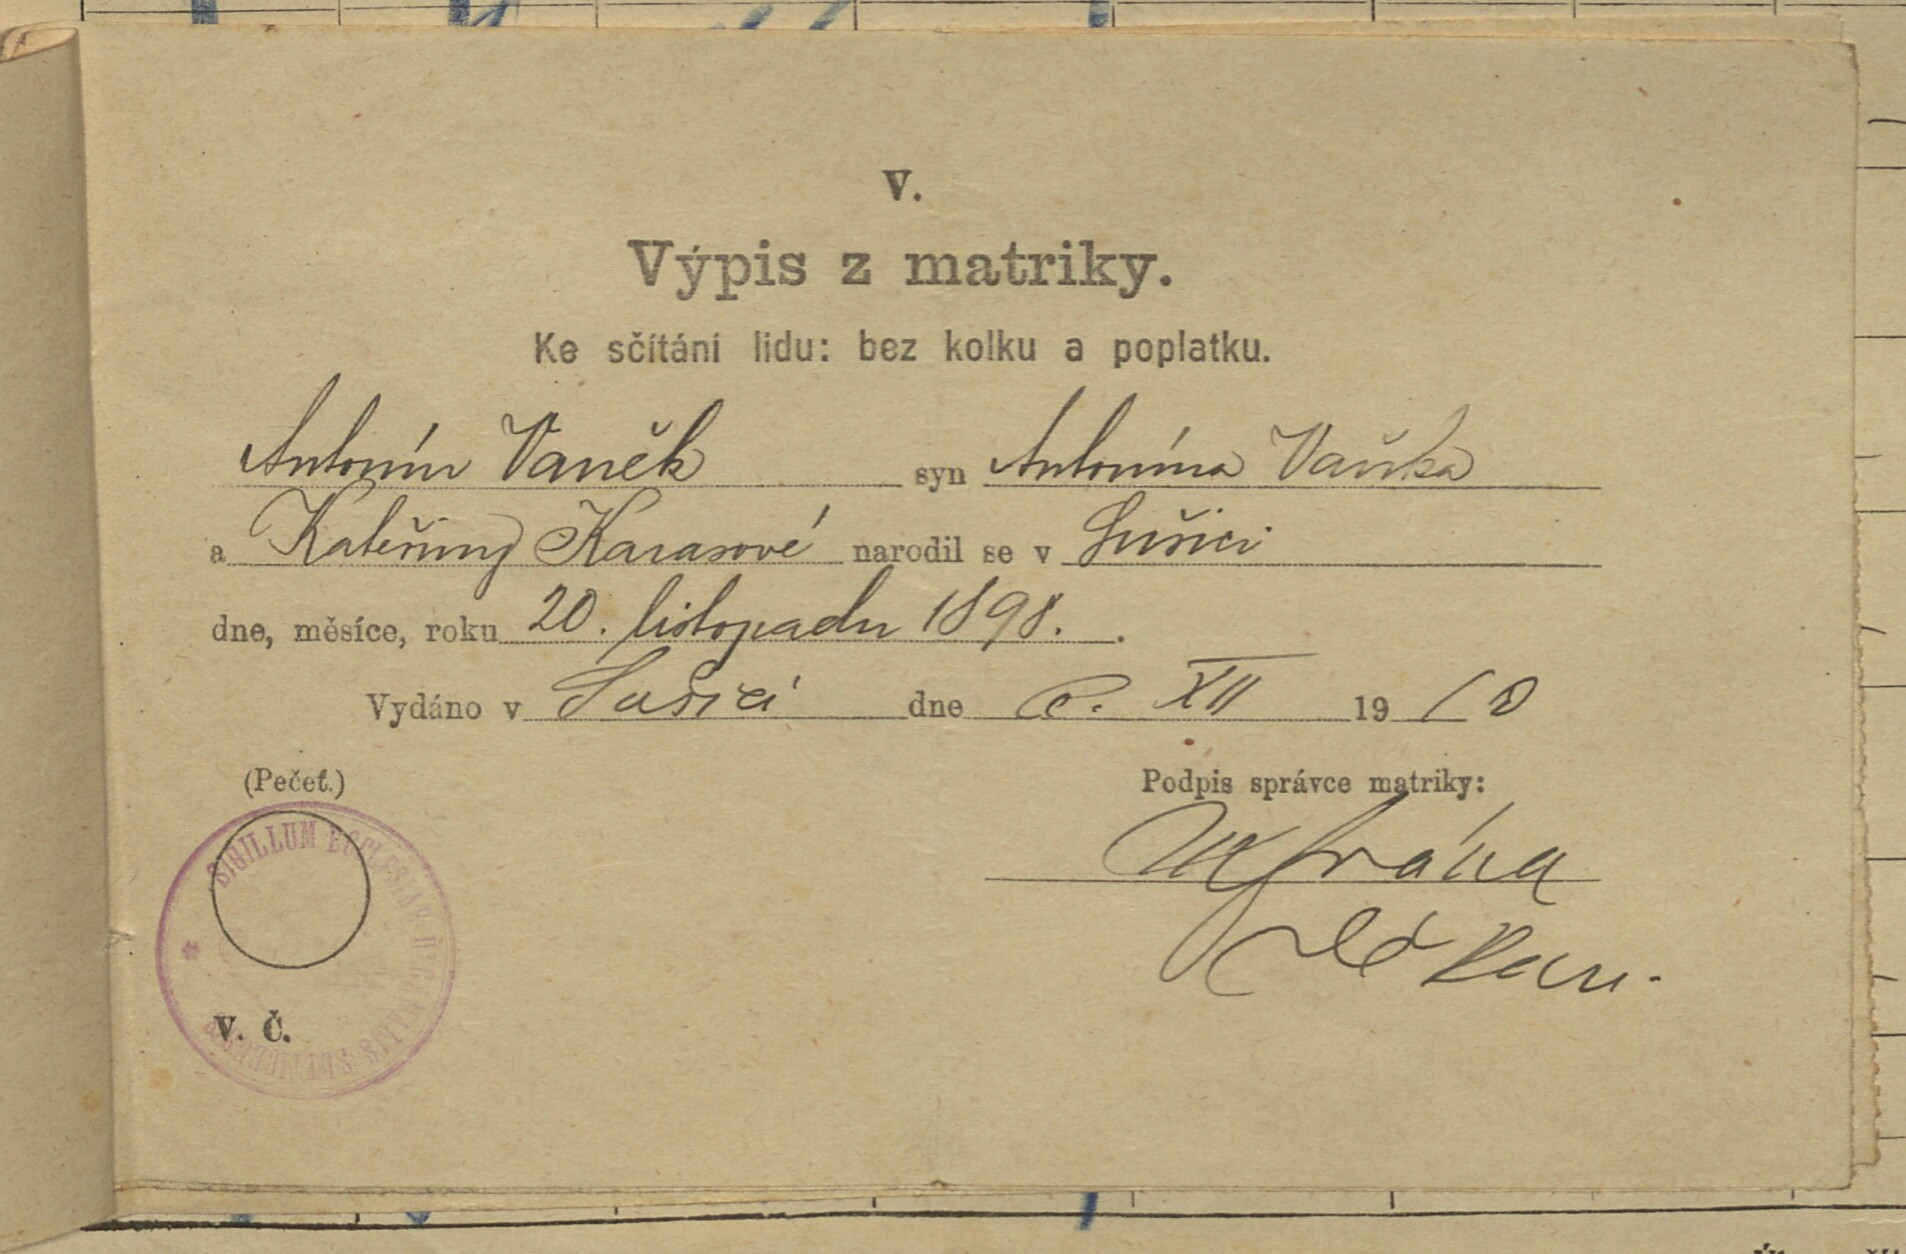 V.
Výpis z matriky.
Ke sčítání lidu: bez kolku a poplatku.
Antonín Vaněk syn Antonína Vaňka
a Kateřiny Karasové narodil se v Sušici
dne, měsíce, roku 20. listopadu 1898.
Vydáno v Sušici dne XII 1910
(Pečeť.)
Podpis správce matriky:
děkan.
SIGILLUM ECCLESIAE
V. Č.